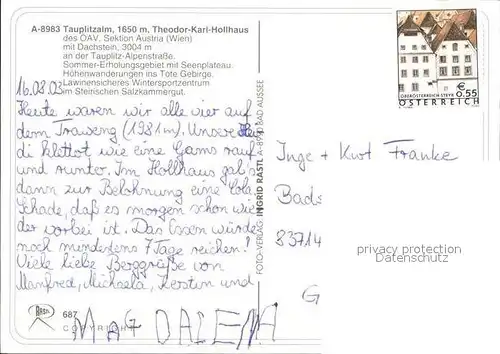 A-8983 Tauplitzalm, 1650 m, Theodor-Karl-Hollhaus
des ÖAV, Sektion Austria (Wien)
mit Dachstein, 3004 m
an der Tauplitz-Alpenstraße.
Sommer-Erholungsgebiet mit Seenplateau.
Höhenwanderungen ins Tote Gebirge.
Lawinensicheres Wintersportzentrum
im Steirischen Salzkammergut.
16.08.03
Heute waren wir alle vier auf
dem Traweng (1981m). Unsere
di klettot wie eine Gams rauf
und runto. Im Hollhaus gab's
dann zur Belohnung eine Cola
Schade, daß es morgen schon wie
der vorbei ist. Das Essen würde
noch mindestens 7 Tage reichen!
Viele liebe Berggrüße von
Manfred, Michaela, Kerstin und
MAGDALENA
687
COPYRIGHT
FOTO-VERLAG: INGRID RASTL A-8990 BAD AUSSEE
€ 0.55
OBERÖSTERREICH STEYR
ÖSTERREICH
Inge + Kurt Franke
Bads
83714
G
privacy protection
Datenschutz